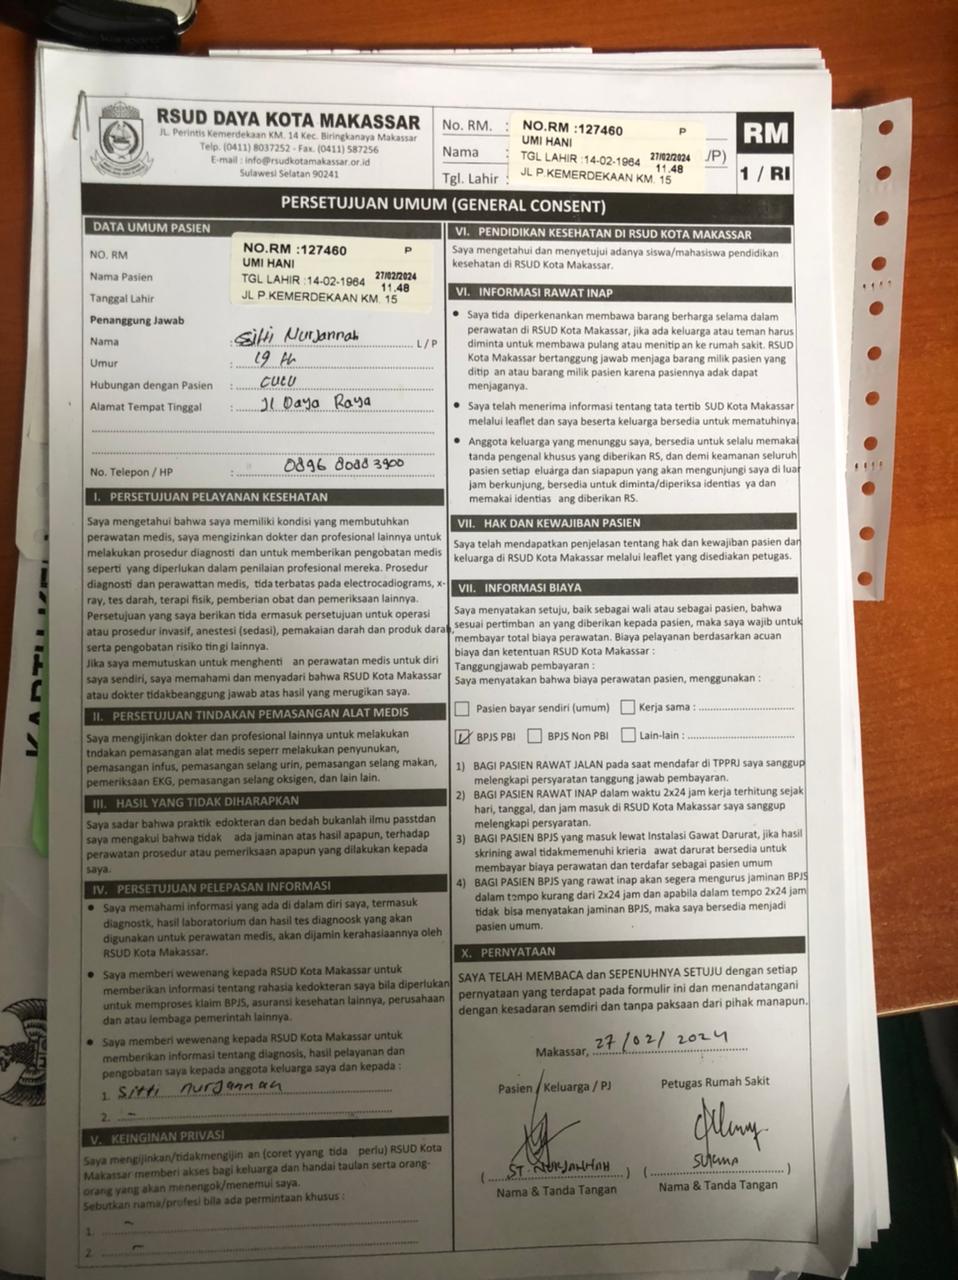 RSUD DAYA KOTA MAKASSAR
JL. Perintis Kemerdekaan KM. 14 Kec. Biringkanaya Makassar
Telp. (0411) 8037252 - Fax. (0411) 587256
E-mail : info@rsudkotamakassar.or.id
Sulawesi Selatan 90241
No. RM. :
Nama :
Tgl. Lahir :
NO.RM :127460 P
UMI HANI
TGL LAHIR :14-02-1964 27/02/2024
JL P.KEMERDEKAAN KM. 15 11.48
/P)
RM
1 / RI
PERSETUJUAN UMUM (GENERAL CONSENT)
DATA UMUM PASIEN
NO. RM
Nama Pasien
Tanggal Lahir
NO.RM :127460 P
UMI HANI
TGL LAHIR :14-02-1964 27/02/2024
JL P.KEMERDEKAAN KM. 15 11.48
Penanggung Jawab
Nama : Sitti Nurjannah L / P
Umur : 19 th
Hubungan dengan Pasien : cucu
Alamat Tempat Tinggal : Jl Daya Raya
No. Telepon / HP : 0896 8088 3900
I. PERSETUJUAN PELAYANAN KESEHATAN
Saya mengetahui bahwa saya memiliki kondisi yang membutuhkan
perawatan medis, saya mengizinkan dokter dan profesional lainnya untuk
melakukan prosedur diagnosti dan untuk memberikan pengobatan medis
seperti yang diperlukan dalam penilaian profesional mereka. Prosedur
diagnosti dan perawattan medis, tida terbatas pada electrocadiograms, x-
ray, tes darah, terapi fisik, pemberian obat dan pemeriksaan lainnya.
Persetujuan yang saya berikan tida ermasuk persetujuan untuk operasi
atau prosedur invasif, anestesi (sedasi), pemakaian darah dan produk darah,
serta pengobatan risiko tin gi lainnya.
Jika saya memutuskan untuk menghenti an perawatan medis untuk diri
saya sendiri, saya memahami dan menyadari bahwa RSUD Kota Makassar
atau dokter tidakbeanggung jawab atas hasil yang merugikan saya.
II. PERSETUJUAN TINDAKAN PEMASANGAN ALAT MEDIS
Saya mengijinkan dokter dan profesional lainnya untuk melakukan
tndakan pemasangan alat medis seperr melakukan penyunukan,
pemasangan infus, pemasangan selang urin, pemasangan selang makan,
pemeriksaan EKG, pemasangan selang oksigen, dan lain lain.
III. HASIL YANG TIDAK DIHARAPKAN
Saya sadar bahwa praktik edokteran dan bedah bukanlah ilmu passtdan
saya mengakui bahwa tidak ada jaminan atas hasil apapun, terhadap
perawatan prosedur atau pemeriksaan apapun yang dilakukan kepada
saya.
IV. PERSETUJUAN PELEPASAN INFORMASI
• Saya memahami informasi yang ada di dalam diri saya, termasuk
diagnostk, hasil laboratorium dan hasil tes diagnoosk yang akan
digunakan untuk perawatan medis, akan dijamin kerahasiaannya oleh
RSUD Kota Makassar.
• Saya memberi wewenang kepada RSUD Kota Makassar untuk
memberikan informasi tentang rahasia kedokteran saya bila diperlukan
untuk memproses klaim BPJS, asuransi kesehatan lainnya, perusahaan
dan atau lembaga pemerintah lainnya.
• Saya memberi wewenang kepada RSUD Kota Makassar untuk
memberikan informasi tentang diagnosis, hasil pelayanan dan
pengobatan saya kepada anggota keluarga saya dan kepada :
1. Sitti nurjannah
2. -
V. KEINGINAN PRIVASI
Saya mengijinkan/tidakmengijin an (coret yyang tida perlu) RSUD Kota
Makassar memberi akses bagi keluarga dan handai taulan serta orang-
orang yang akan menengok/menemui saya.
Sebutkan nama/profesi bila ada permintaan khusus :
1. -
2. -
VI. PENDIDIKAN KESEHATAN DI RSUD KOTA MAKASSAR
Saya mengetahui dan menyetujui adanya siswa/mahasiswa pendidikan
kesehatan di RSUD Kota Makassar.
VI. INFORMASI RAWAT INAP
• Saya tida diperkenankan membawa barang berharga selama dalam
perawatan di RSUD Kota Makassar, jika ada keluarga atau teman harus
diminta untuk membawa pulang atau menitip an ke rumah sakit. RSUD
Kota Makassar bertanggung jawab menjaga barang milik pasien yang
ditip an atau barang milik pasien karena pasiennya adak dapat
menjaganya.
• Saya telah menerima informasi tentang tata tertib SUD Kota Makassar
melalui leaflet dan saya beserta keluarga bersedia untuk mematuhinya.
• Anggota keluarga yang menunggu saya, bersedia untuk selalu memakai
tanda pengenal khusus yang diberikan RS, dan demi keamanan seluruh
pasien setiap eluarga dan siapapun yang akan mengunjungi saya di luar
jam berkunjung, bersedia untuk diminta/diperiksa identias ya dan
memakai identias ang diberikan RS.
VII. HAK DAN KEWAJIBAN PASIEN
Saya telah mendapatkan penjelasan tentang hak dan kewajiban pasien dan
keluarga di RSUD Kota Makassar melalui leaflet yang disediakan petugas.
VII. INFORMASI BIAYA
Saya menyatakan setuju, baik sebagai wali atau sebagai pasien, bahwa
sesuai pertimban an yang diberikan kepada pasien, maka saya wajib untuk
membayar total biaya perawatan. Biaya pelayanan berdasarkan acuan
biaya dan ketentuan RSUD Kota Makassar :
Tanggungjawab pembayaran :
Saya menyatakan bahwa biaya perawatan pasien, menggunakan :
Pasien bayar sendiri (umum) Kerja sama :
BPJS PBI BPJS Non PBI Lain-lain :
1) BAGI PASIEN RAWAT JALAN pada saat mendafar di TPPRJ saya sanggup
melengkapi persyaratan tanggung jawab pembayaran.
2) BAGI PASIEN RAWAT INAP dalam waktu 2x24 jam kerja terhitung sejak
hari, tanggal, dan jam masuk di RSUD Kota Makassar saya sanggup
melengkapi persyaratan.
3) BAGI PASIEN BPJS yang masuk lewat Instalasi Gawat Darurat, jika hasil
skrining awal tidakmemenuhi krieria awat darurat bersedia untuk
membayar biaya perawatan dan terdafar sebagai pasien umum
4) BAGI PASIEN BPJS yang rawat inap akan segera mengurus jaminan BPJS
dalam tempo kurang dari 2x24 jam dan apabila dalam tempo 2x24 jam
tidak bisa menyatakan jaminan BPJS, maka saya bersedia menjadi
pasien umum.
X. PERNYATAAN
SAYA TELAH MEMBACA dan SEPENUHNYA SETUJU dengan setiap
pernyataan yang terdapat pada formulir ini dan menandatangani
dengan kesadaran semdiri dan tanpa paksaan dari pihak manapun.
Makassar, 27/02/2024
Pasien / Keluarga / PJ Petugas Rumah Sakit
( ST. NURJANNAH ) ( )
Nama & Tanda Tangan Nama & Tanda Tangan